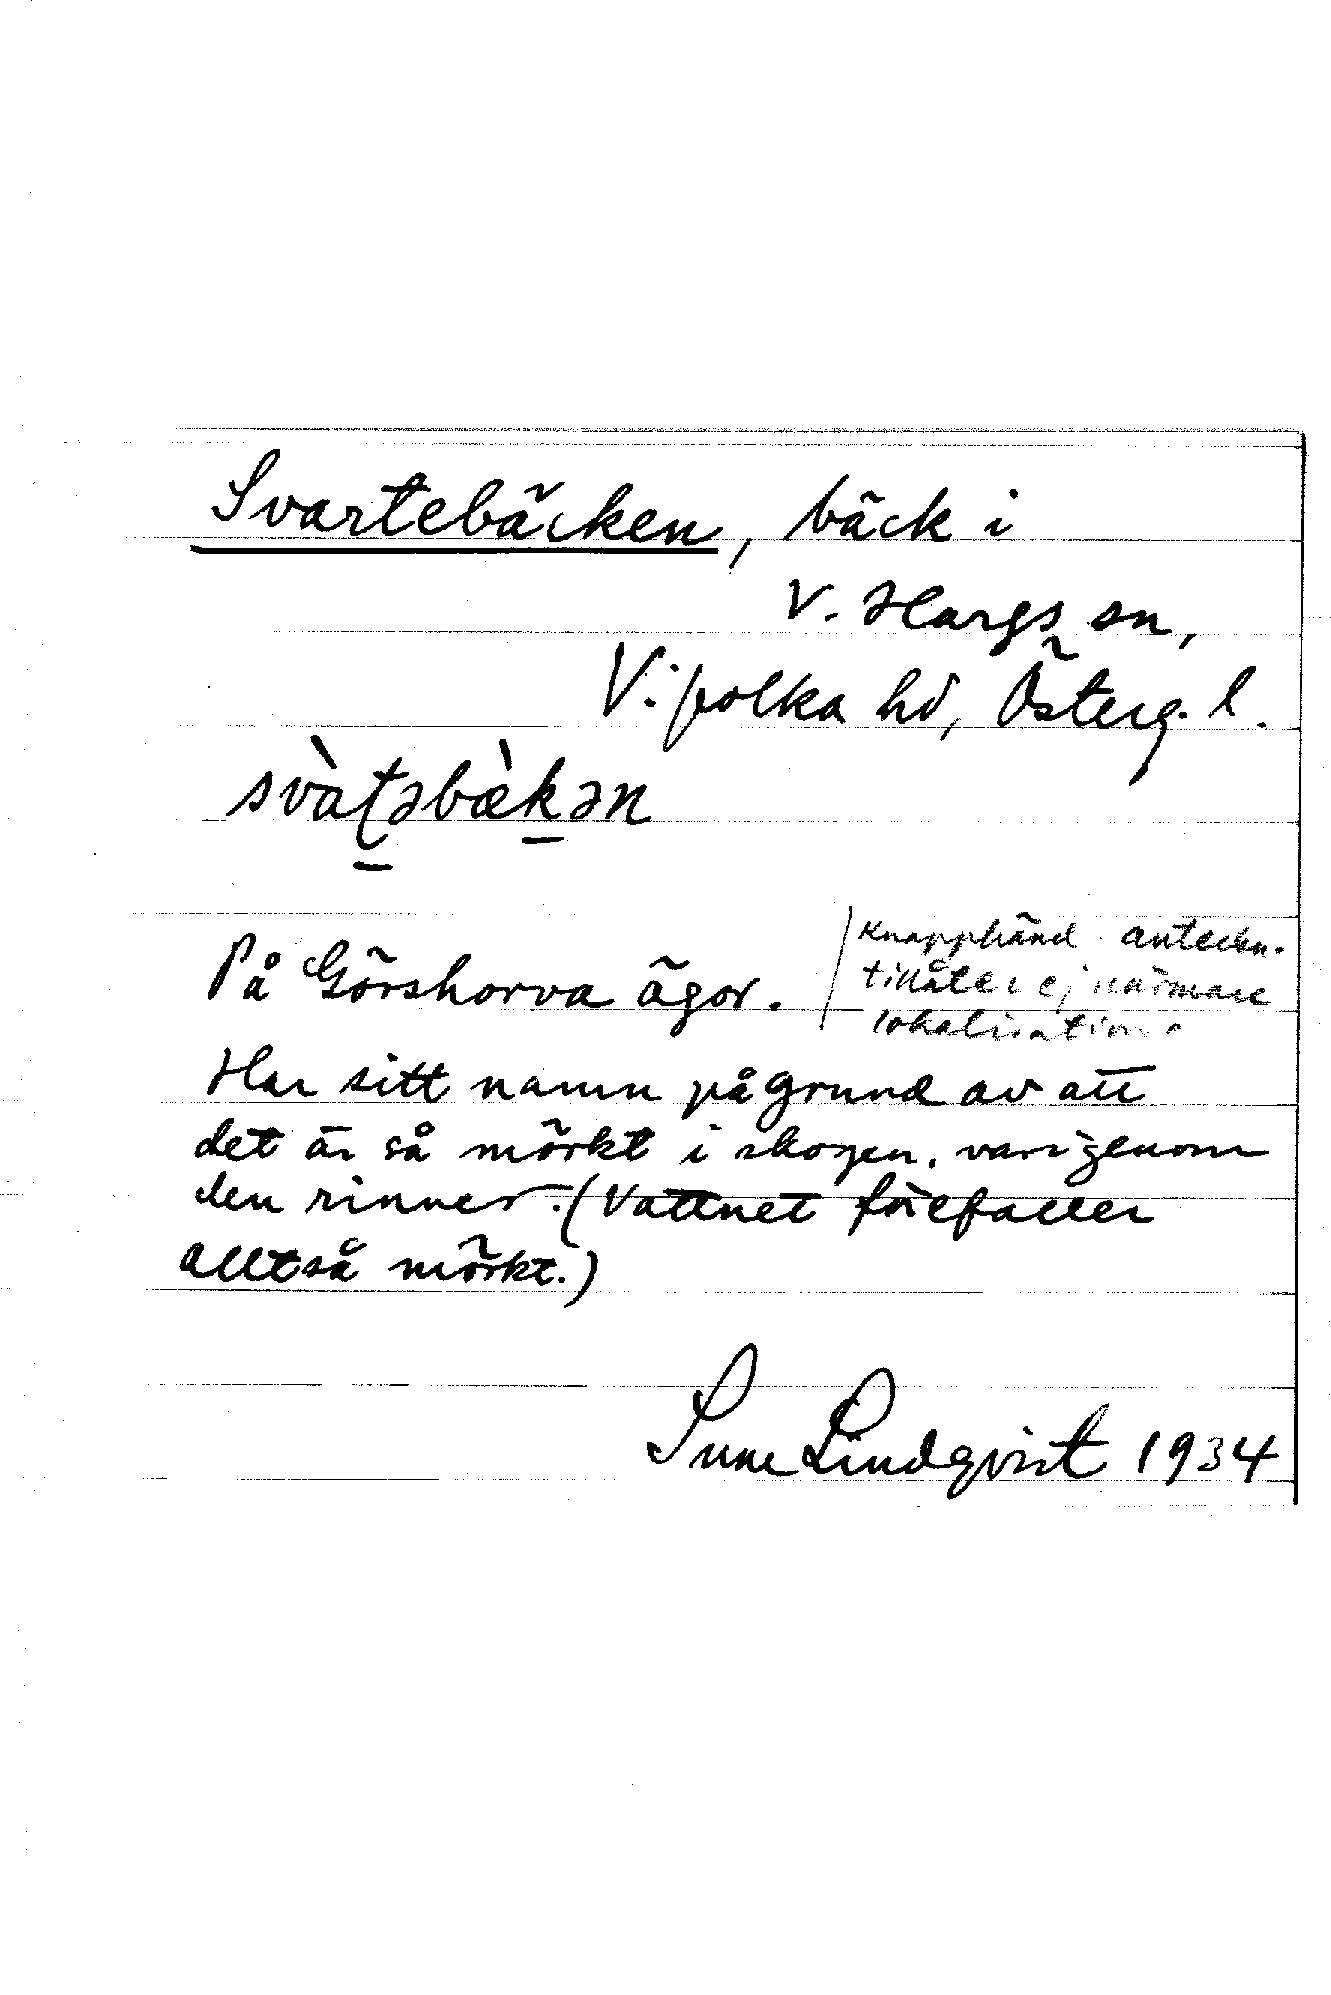 Svartebäcken, bäck i
V. Hargs sn,
Vifolka hd, Österg. l.
svàʈəbæ̀kən
På Görshorva ägor.
knapphänd anteckn.
tillåter ej närmare
lokalisation
Har sitt namn på grund av att
det är så mörkt i skogen, varigenom
den rinner. (Vattnet förefaller
alltså mörkt.)
Sune Lindqvist 1934